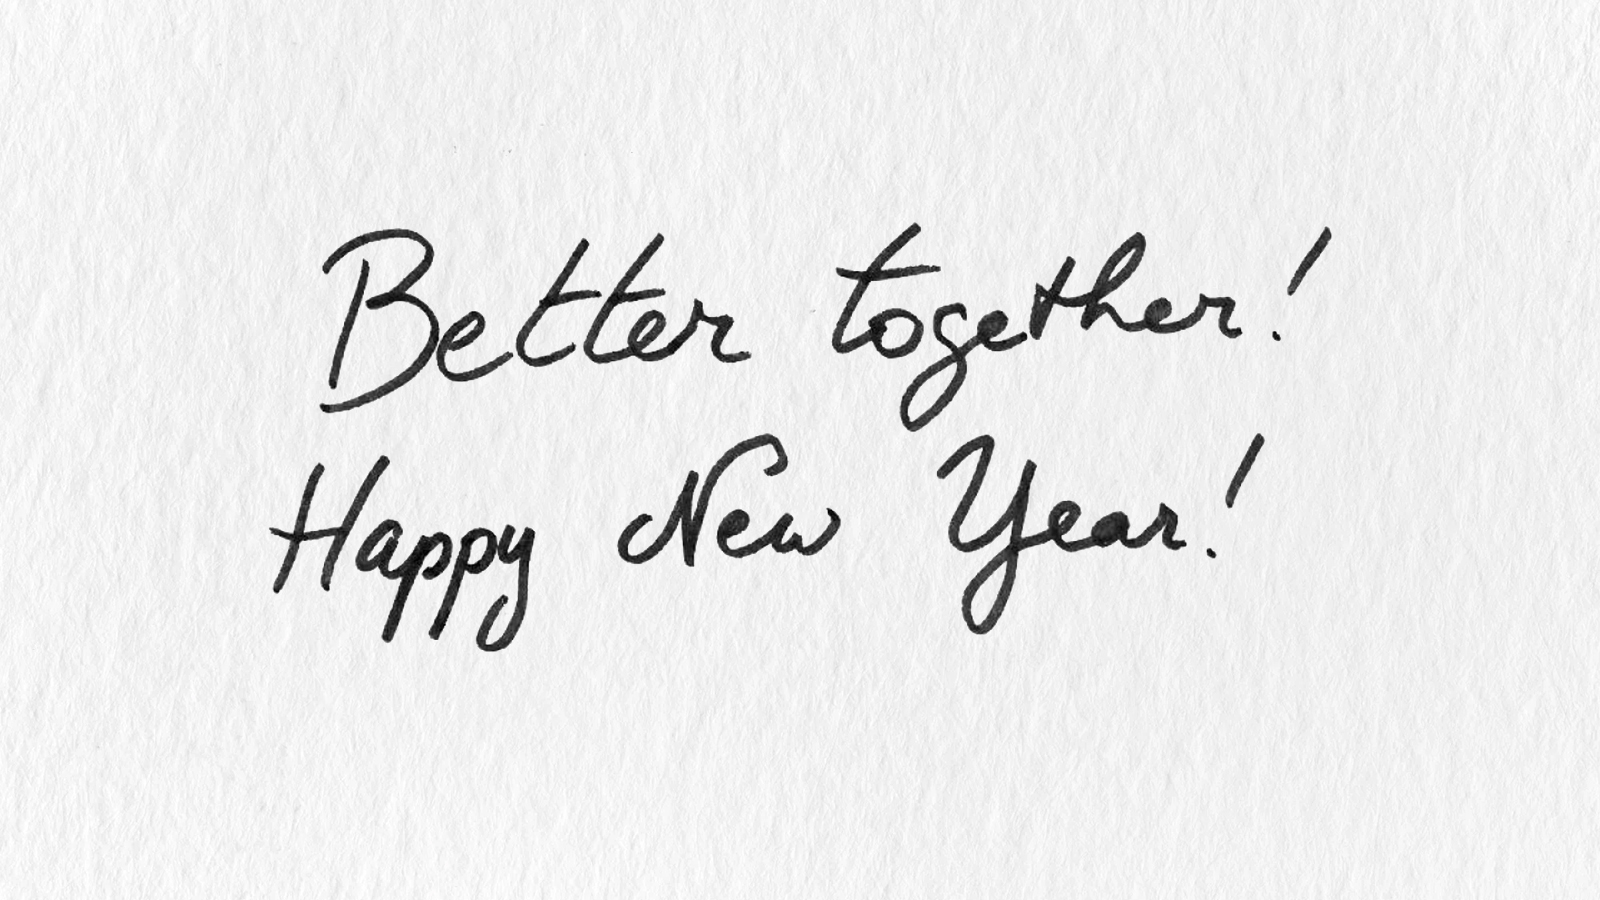 Better together!
Happy New Year!